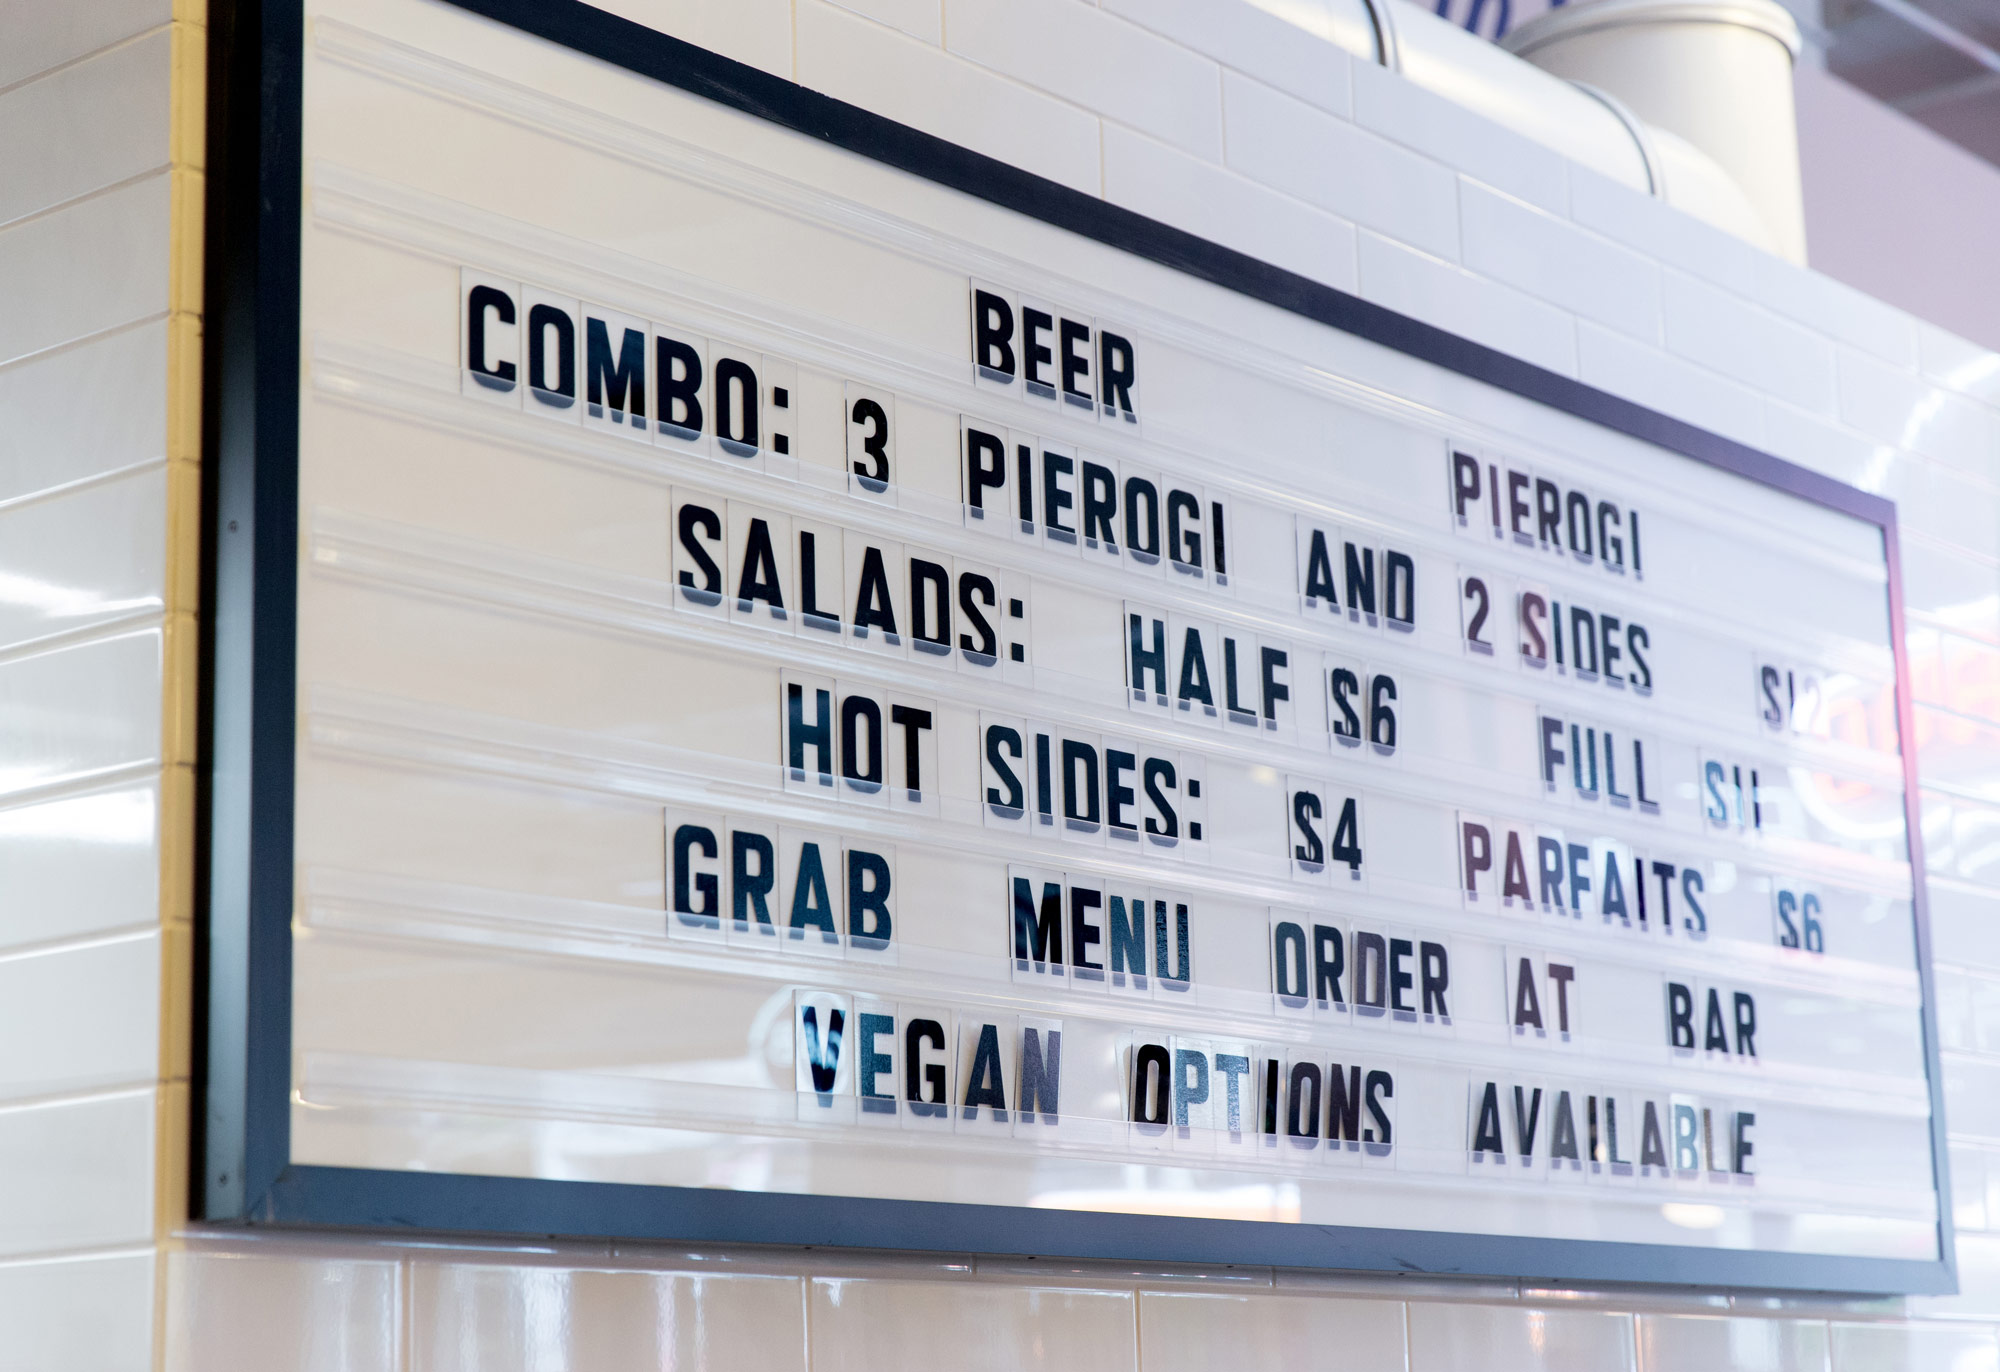 BEER PIEROGI
COMBO: 3 PIEROGI AND 2 SIDES $12
SALADS: HALF $6 FULL $11
HOT SIDES: $4 PARFAITS $6
GRAB MENU ORDER AT BAR
VEGAN OPTIONS AVAILABLE